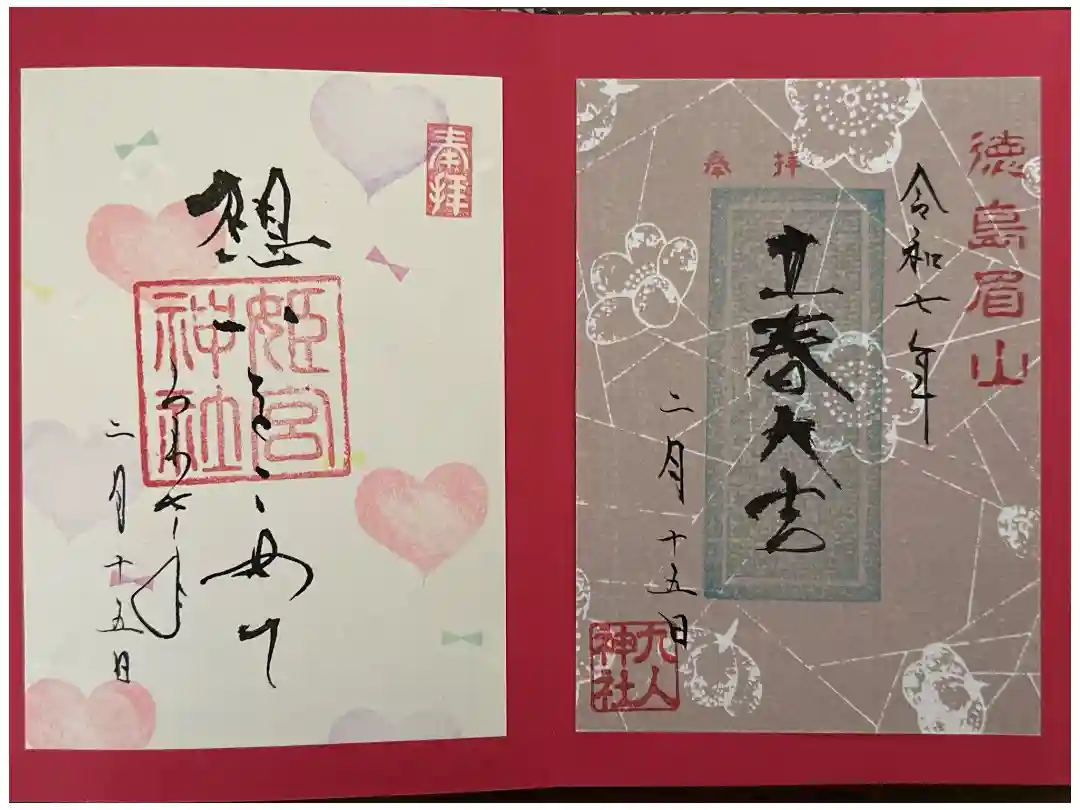 徳島眉山
令和七年
奉拝
立春大吉
二月十五日
神社
奉拝
想いをこめて
姫宮神社
二月十五日